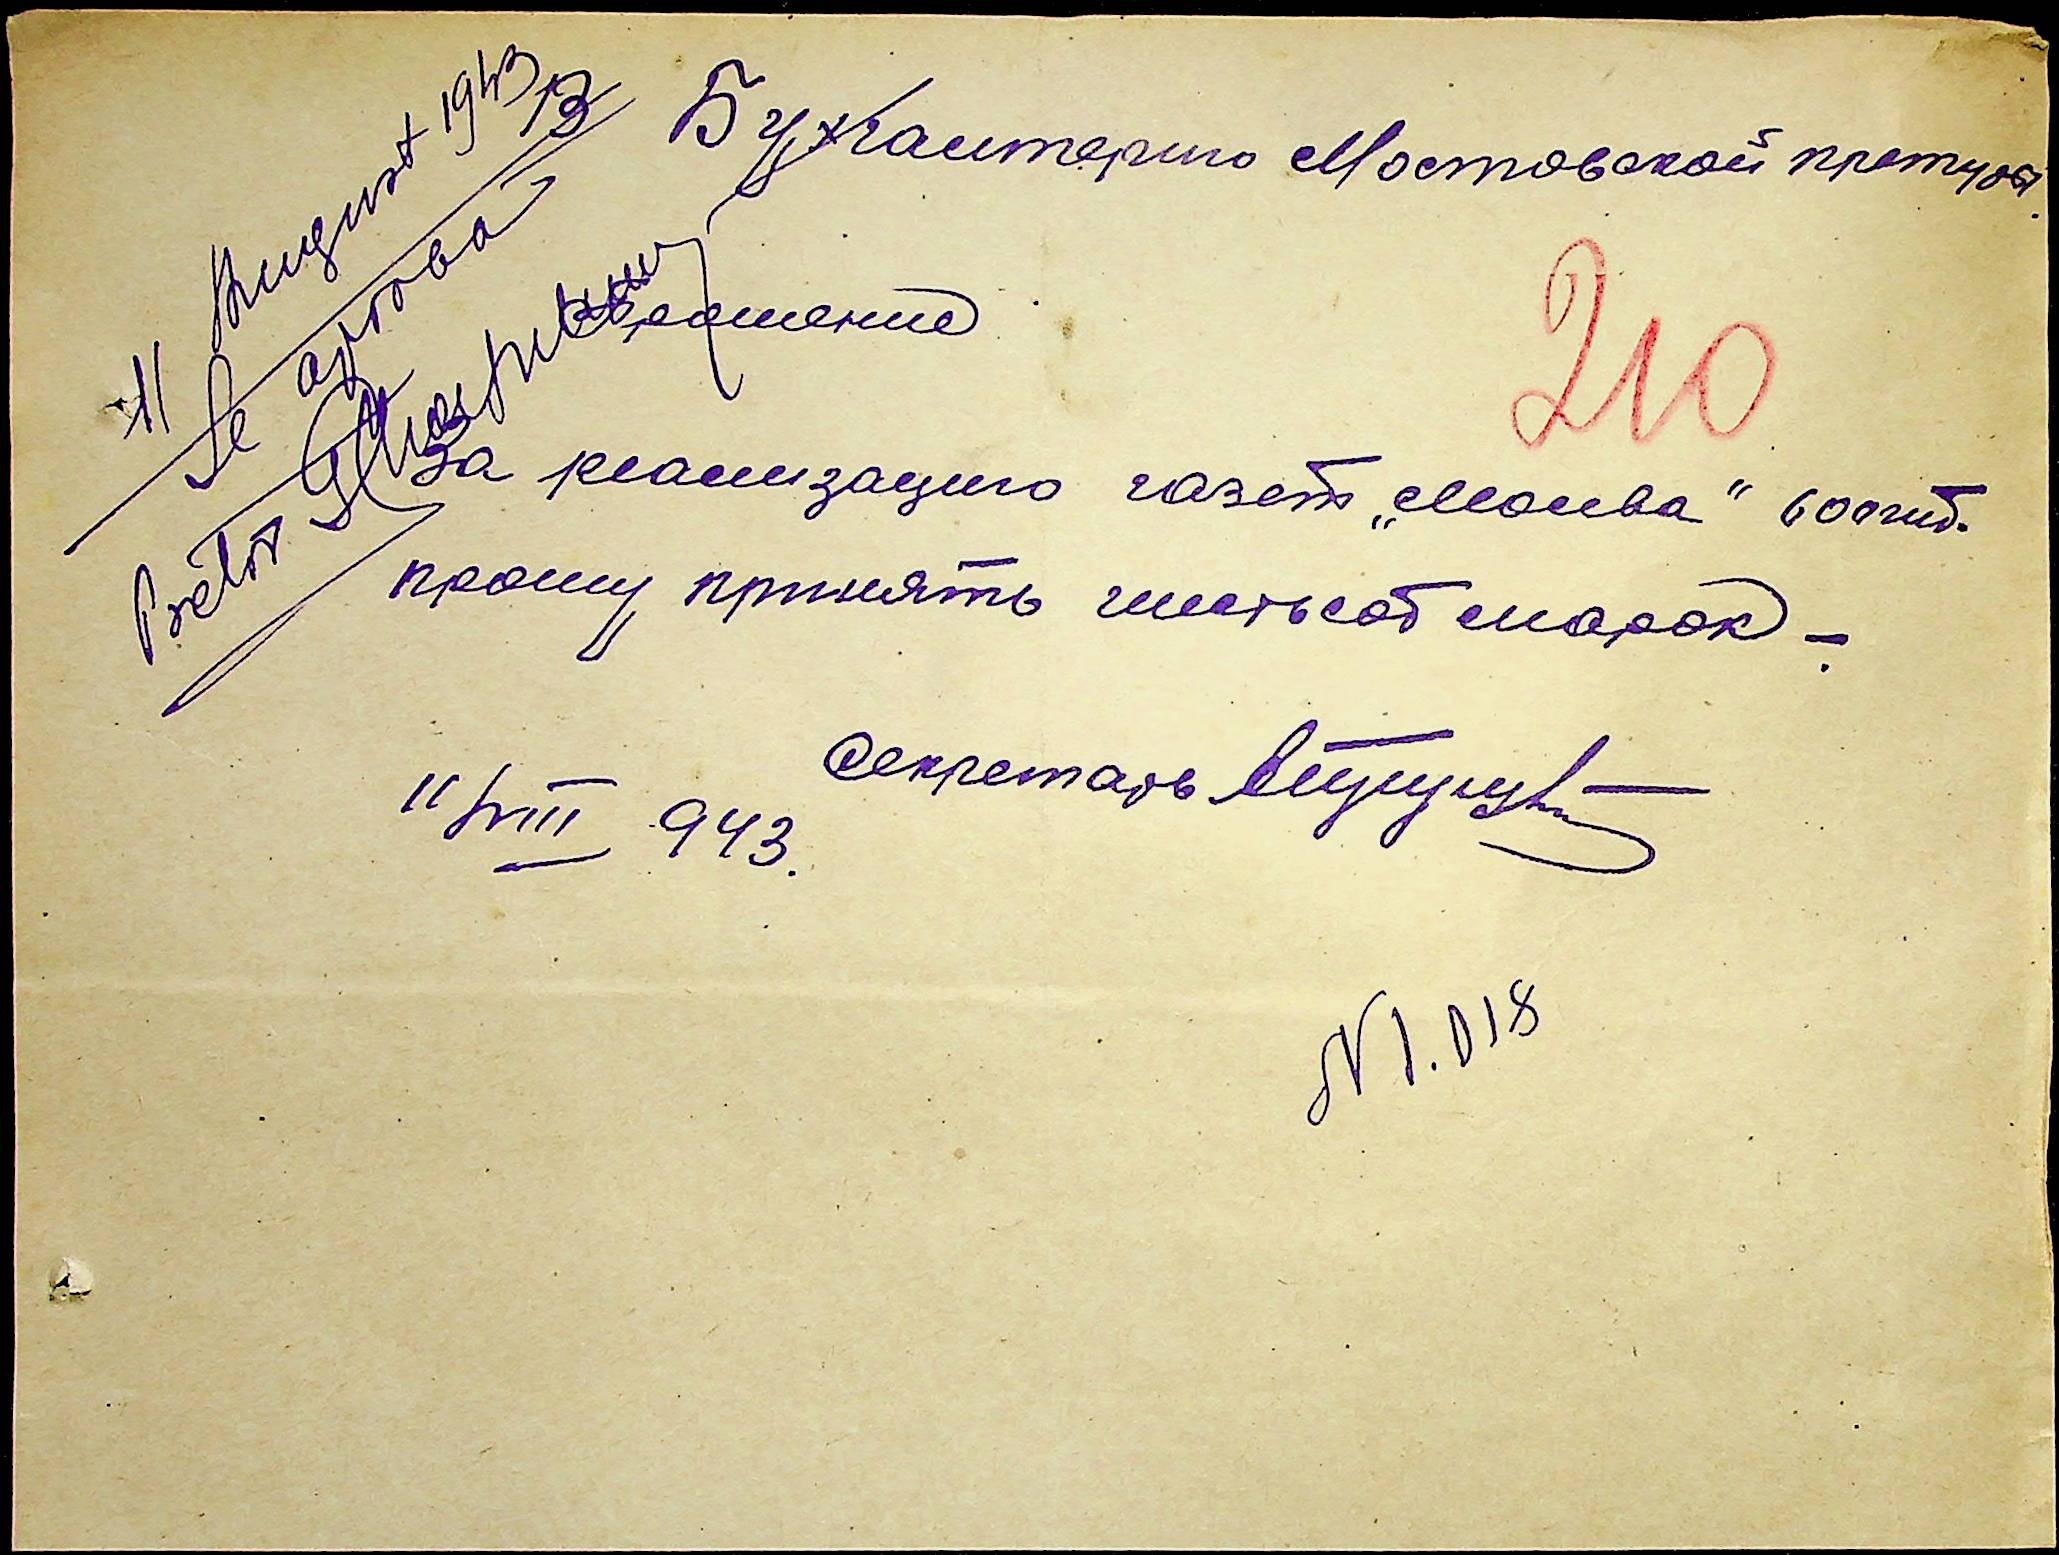 11 August 1943
Se aprobă
Pretor
Бухгалтерию Мостовской претуры.
отношение
За реализацию газет „Молва“ 600 шт.
прошу принять шестьсот марок –.
Секретарь
11/VIII 943.
210
N 1.018